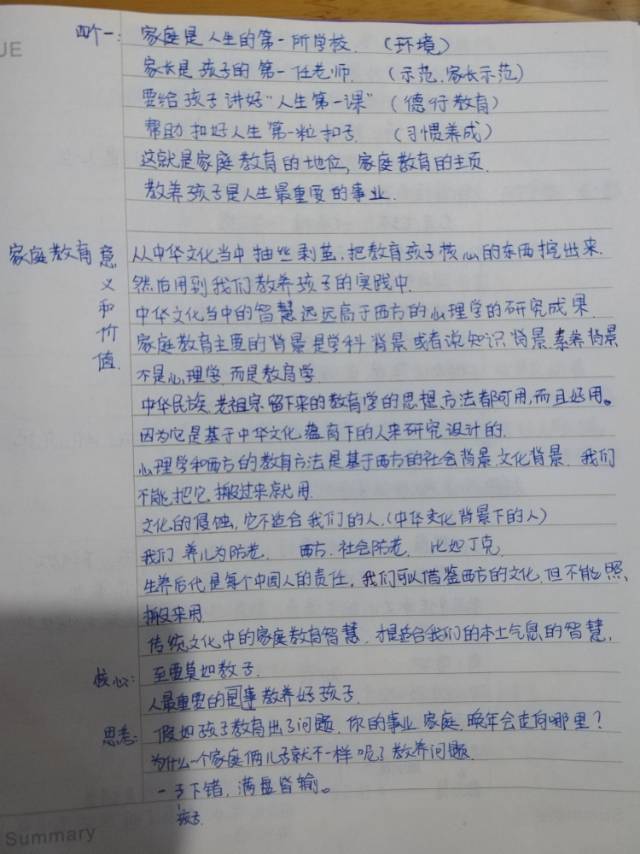 UE
四个一: 家庭是人生的第一所学校. (环境)
家长是孩子的第一任老师. (示范,家长示范)
要给孩子讲好"人生第一课" (德行教育)
帮助扣好人生第一粒扣子. (习惯养成)
这就是家庭教育的地位,家庭教育的主页.
教养孩子是人生最重要的事业.
家庭教育意义和价值. 从中华文化当中抽丝剥茧,把教育孩子核心的东西挖出来.
然后用到我们教养孩子的实践中.
中华文化当中的智慧远远高于西方的心理学的研究成果.
家庭教育主要的背景是学科背景或者说知识背景.素养背景
不是心理学而是教育学.
中华民族老祖宗留下来的教育学的思想、方法都可用,而且好用。
因为它是基于中华文化蕴育下的人来研究设计的.
心理学和西方的教育方法是基于西方的社会背景文化背景. 我们
不能把它搬过来就用
文化的侵蚀,它不适合我们的人.(中华文化背景下的人)
我们养儿为防老. 西方.社会防老, 比如丁克.
生养后代是每个中国人的责任,我们可以借鉴西方的文化,但不能照
搬来用
传统文化中的家庭教育智慧.才是适合我们的本土气息的智慧.
核心: 至要莫如教子.
人最重要的是事教养好孩子.
思考: 假如孩子教育出了问题.你的事业家庭.晚年会走向哪里?
为什么一个家庭俩儿子就不一样呢?教养问题.
一子下错,满盘皆输。
孩子
Summary